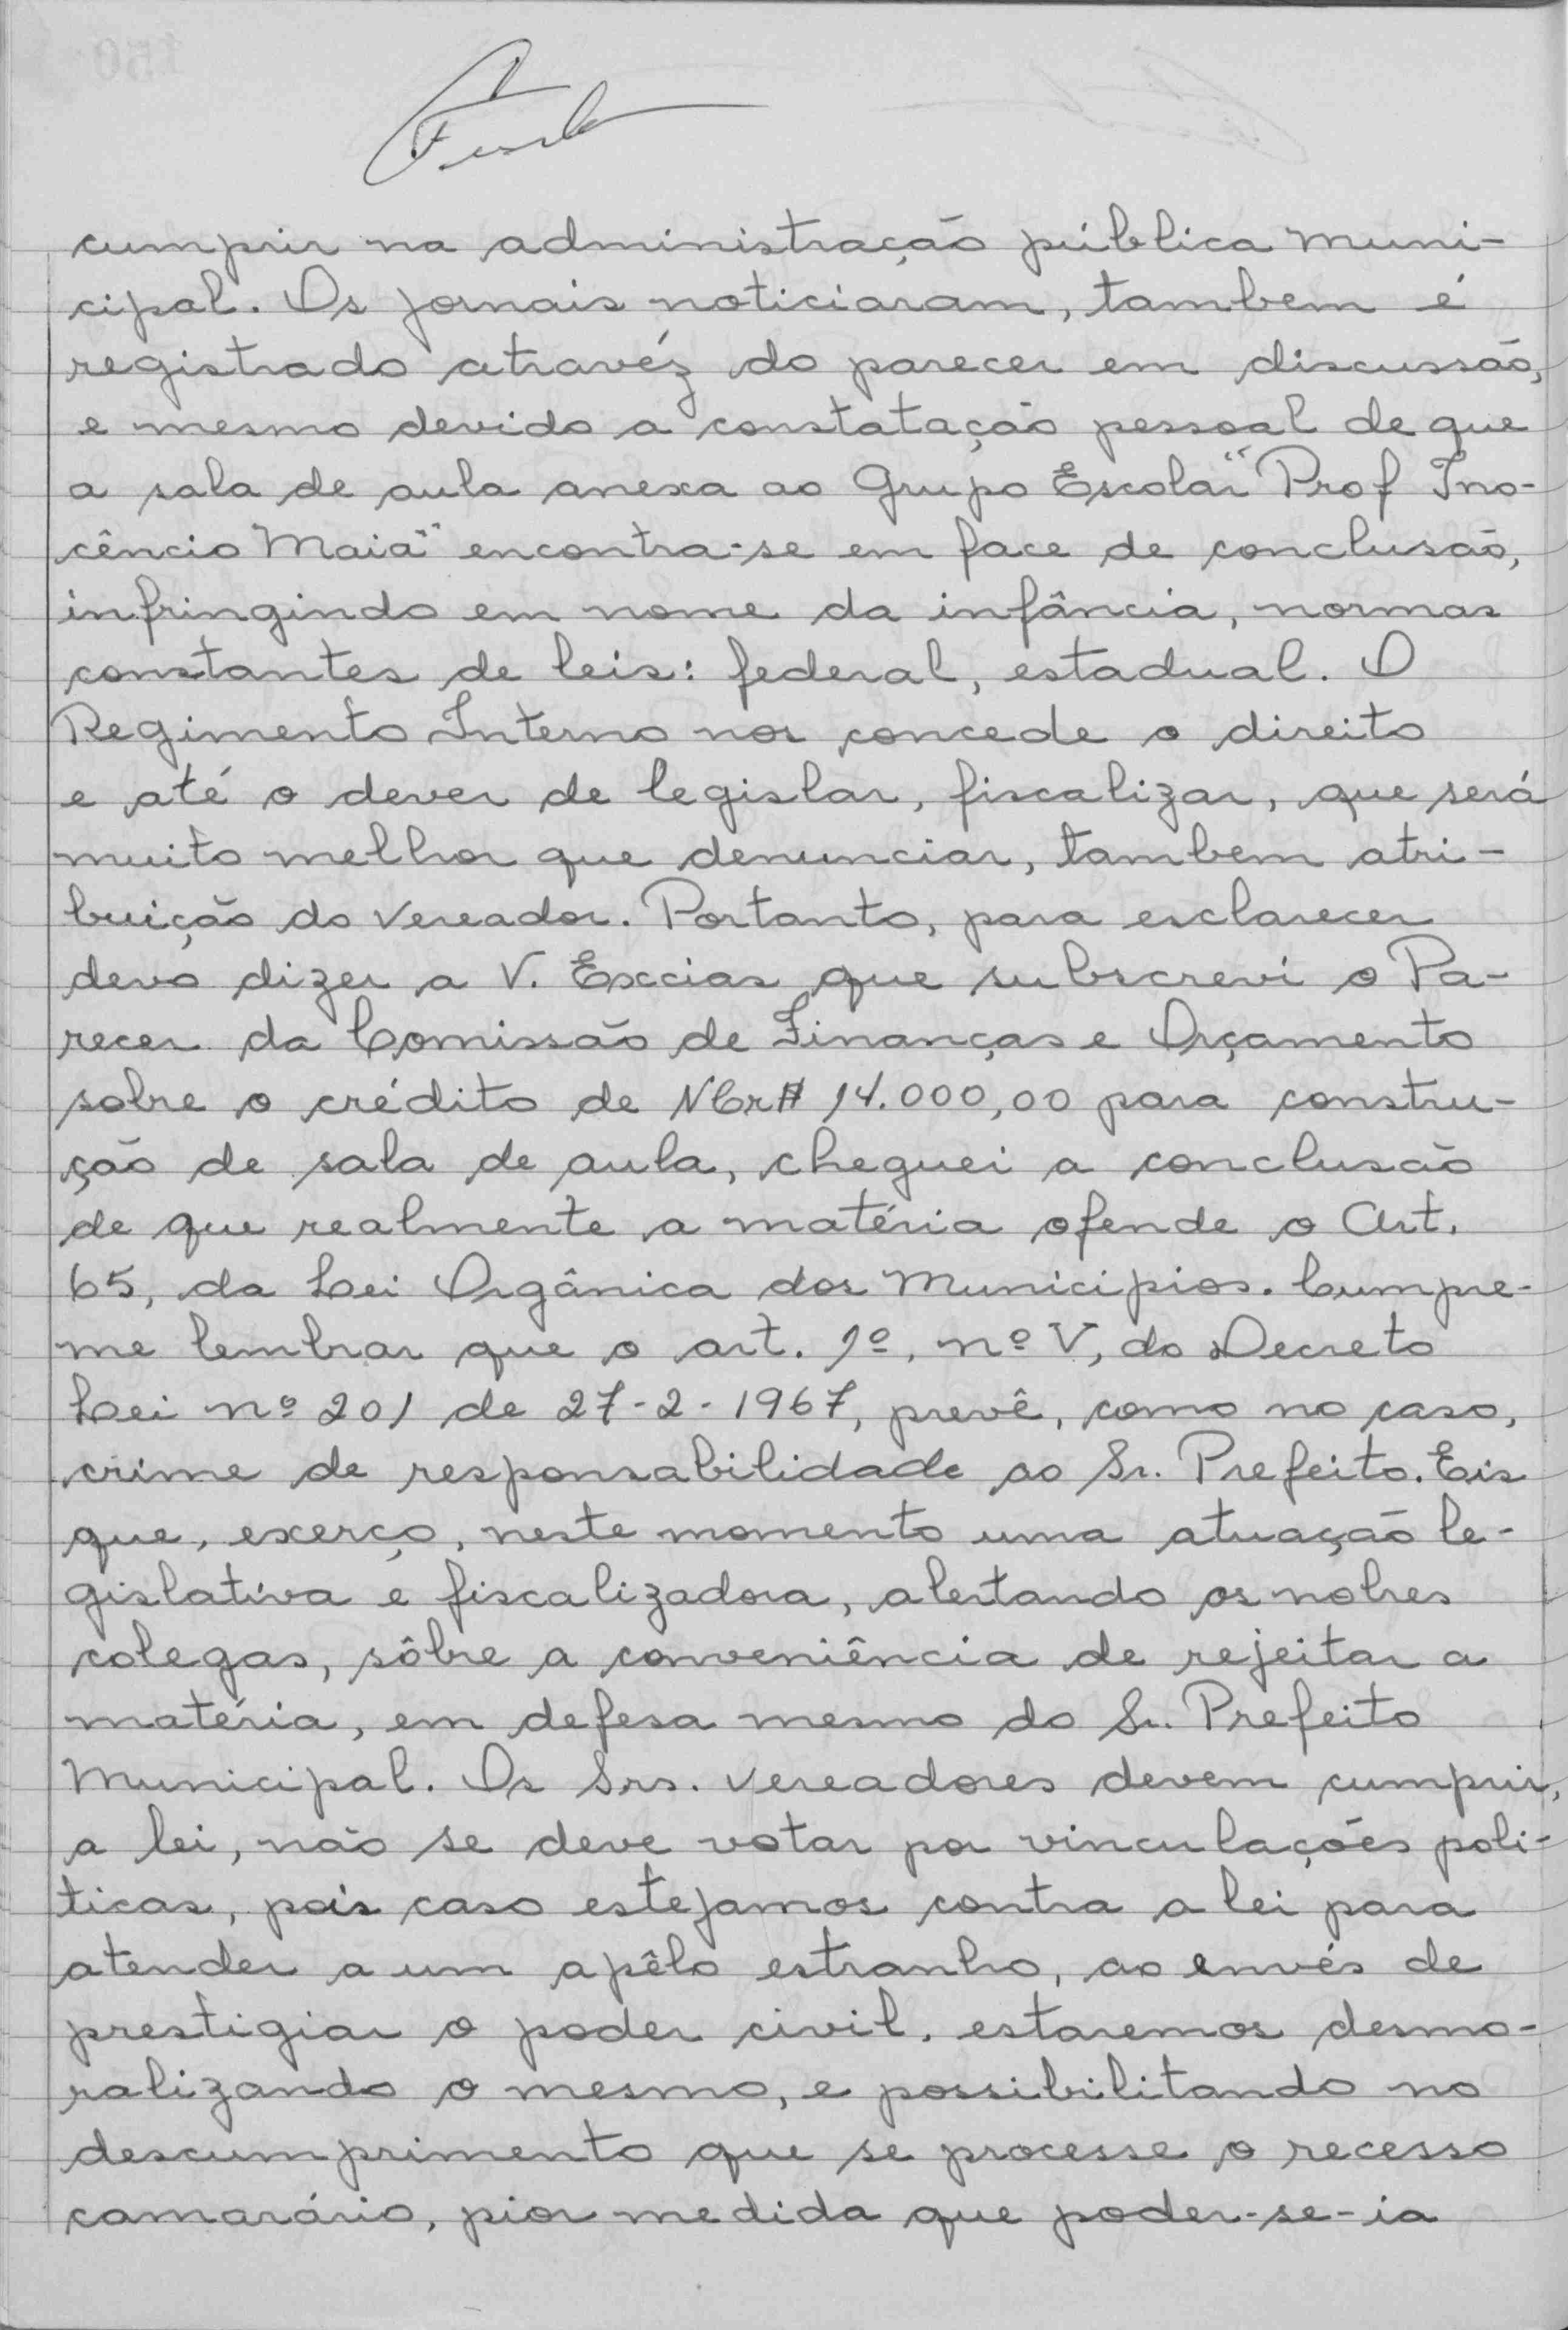 cumprir na administração pública muni-
cipal. Os jornais noticiaram, tambem é
registrado atravéz do parecer em discussão,
e mesmo devido a constatação pessoal de que
a sala de aula anexa ao Grupo Escolar "Prof Ino-
cêncio Maia" encontra-se em face de conclusão,
infringindo em nome da infância, normas
constantes de leis: federal, estadual. O
Regimento Interno nos concede o direito
e até o dever de legislar, fiscalizar, que será
muito melhor que denunciar, tambem atri-
buição do Vereador. Portanto, para esclarecer
devo dizer a V. Excias que subscrevi o Pa-
recer da Comissão de Finanças e Orçamento
sobre o crédito de NCr$ 14.000,00 para constru-
ção de sala de aula, cheguei a conclusão
de que realmente a matéria ofende o Art.
65, da Lei Orgânica dos Municipios. Cumpre-
me lembrar que o art. 1º, nº V, do Decreto
Lei nº 201 de 27-2-1967, prevê, como no caso,
crime de responsabilidade ao Sr. Prefeito. Eis
que, exerço, neste momento uma atuação le-
gislativa e fiscalizadora, alertando os nobres
colegas, sôbre a conveniência de rejeitar a
matéria, em defesa mesmo do Sr. Prefeito
Municipal. Os Srs. Vereadores devem cumprir,
a lei, não se deve votar por vinculações poli-
ticas, pois caso estejamos contra a lei para
atender a um apêlo estranho, ao envés de
prestigiar o poder civil, estaremos desmo-
ralizando o mesmo, e possibilitando no
descumprimento que se processe o recesso
camarário, pior medida que poder-se-ia